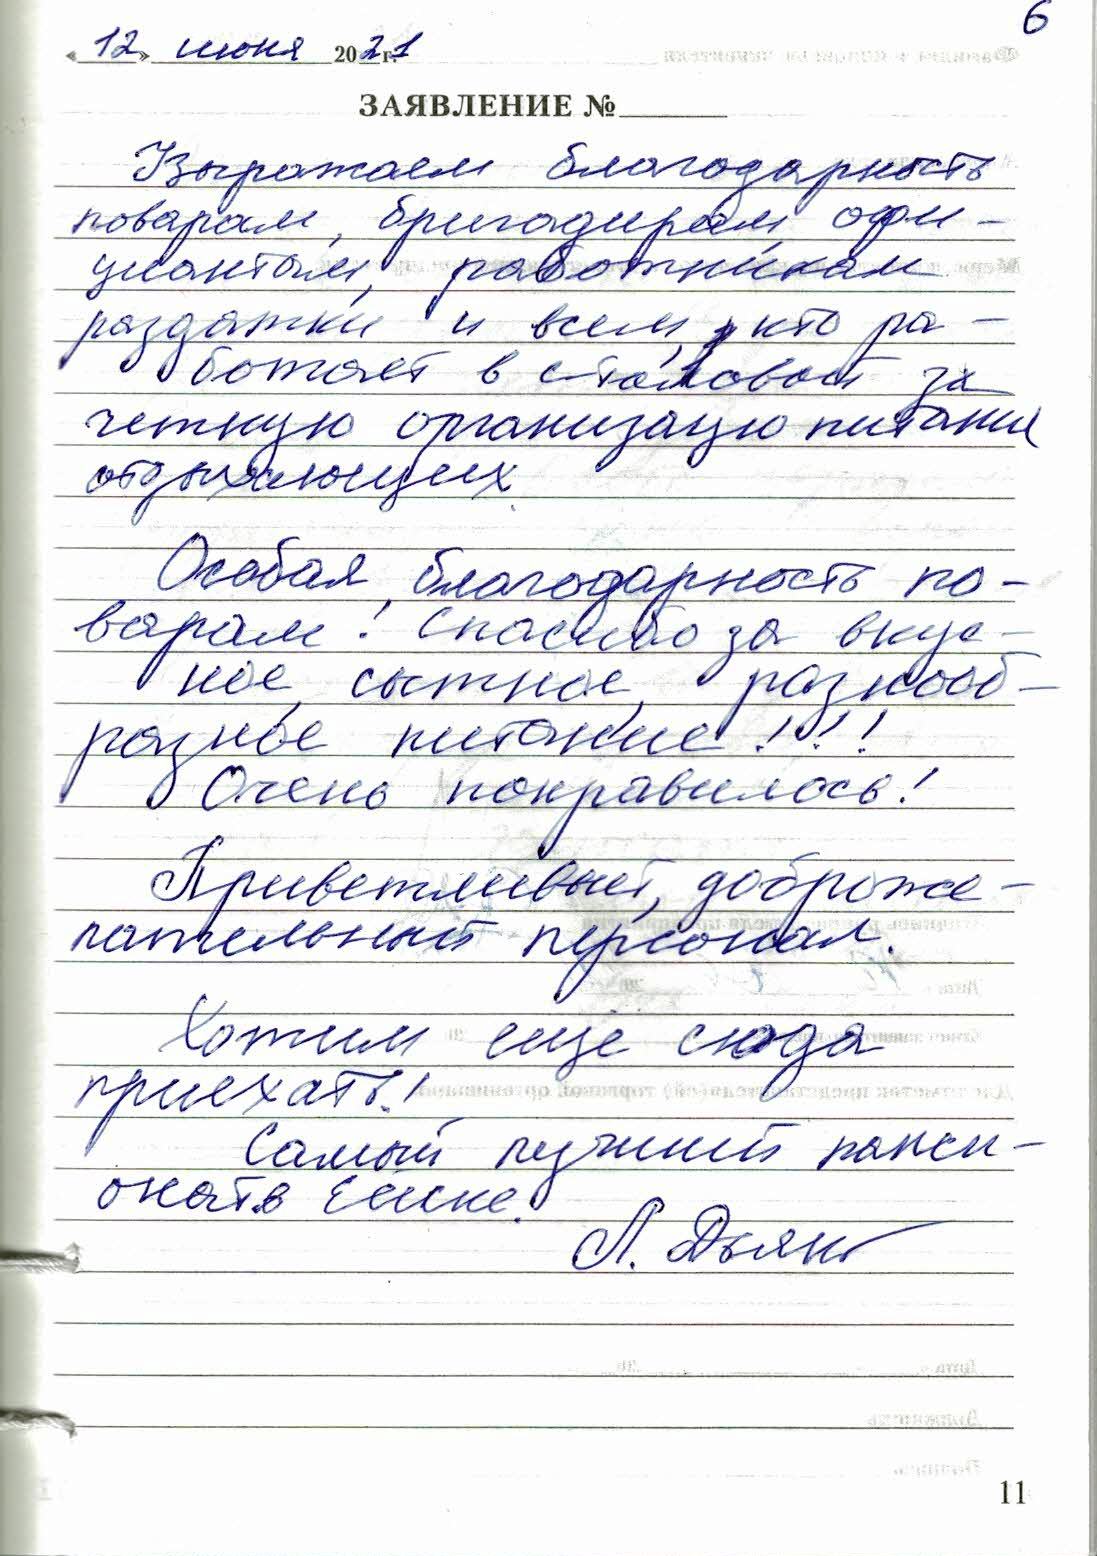 6
«12» июня 2021 г.
ЗАЯВЛЕНИЕ №
Выражаем благодарность
поварам, бригадирам, офи-
циантам, работникам
раздатки и всем, кто ра-
ботает в столовой за
четкую организацию питания
отдыхающих.
Особая благодарность по-
варам! Спасибо за вкус-
ное, сытное, разнооб-
разное питание!!!
Очень понравилось!
Приветливый, доброже-
лательный персонал.
Хотим еще сюда
приехать!
Самый лучший панси-
онат в Ейске.
Л.
11